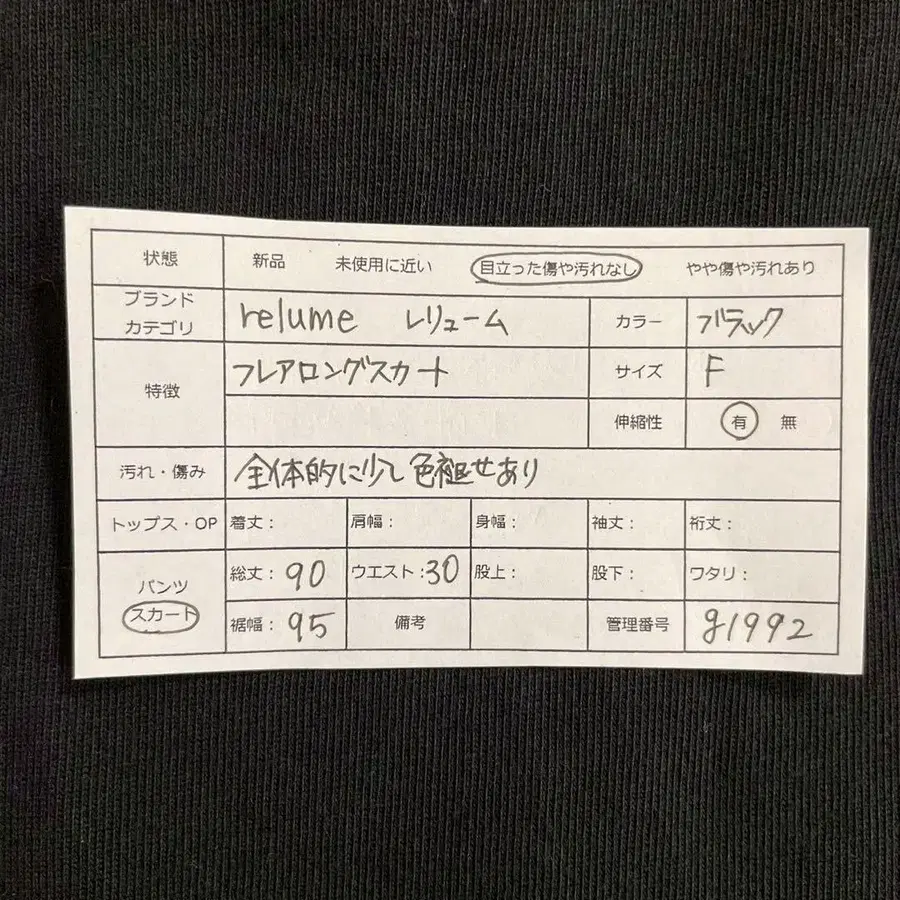 状態 新品 未使用に近い 目立った傷や汚れなし やや傷や汚れあり
ブランド
カテゴリ relume レリューム カラー ブラック
特徴 フレアロングスカート サイズ F
伸縮性 有 無
汚れ・傷み 全体的に少し色褪せあり
トップス・OP 着丈: 肩幅: 身幅: 袖丈: 裄丈:
パンツ 総丈: 90 ウエスト:30 股上: 股下: ワタリ:
スカート 裾幅: 95 備考 管理番号 g1992